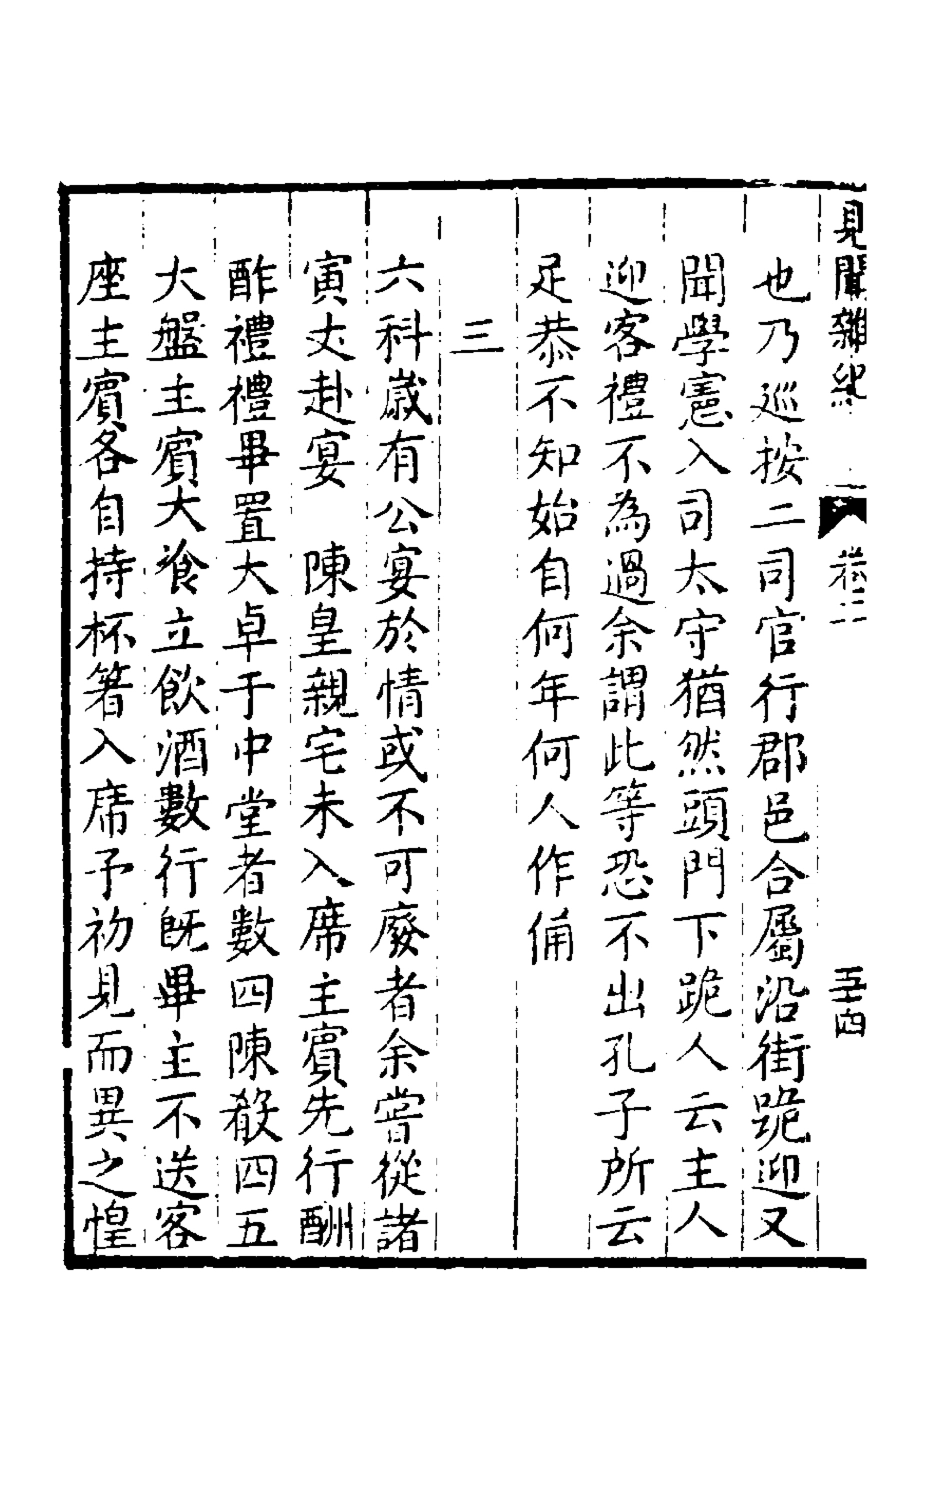 見聞雜紀 卷二 五十四
也乃巡按二司官行郡邑合屬沿街跪迎又
聞學憲入司太守猶然頭門下跪人云主人
迎客禮不為過余謂此等恐不出孔子所云
足恭不知始自何年何人作俑
三
六科歲有公宴於情或不可廢者余嘗從諸
寅丈赴宴 陳皇親宅未入席主賓先行酬
酢禮禮畢置大卓于中堂者數四陳殽四五
大盤主賓大飡立飲酒數行旣畢主不送客
座主賓各自持杯箸入席予初見而異之惶